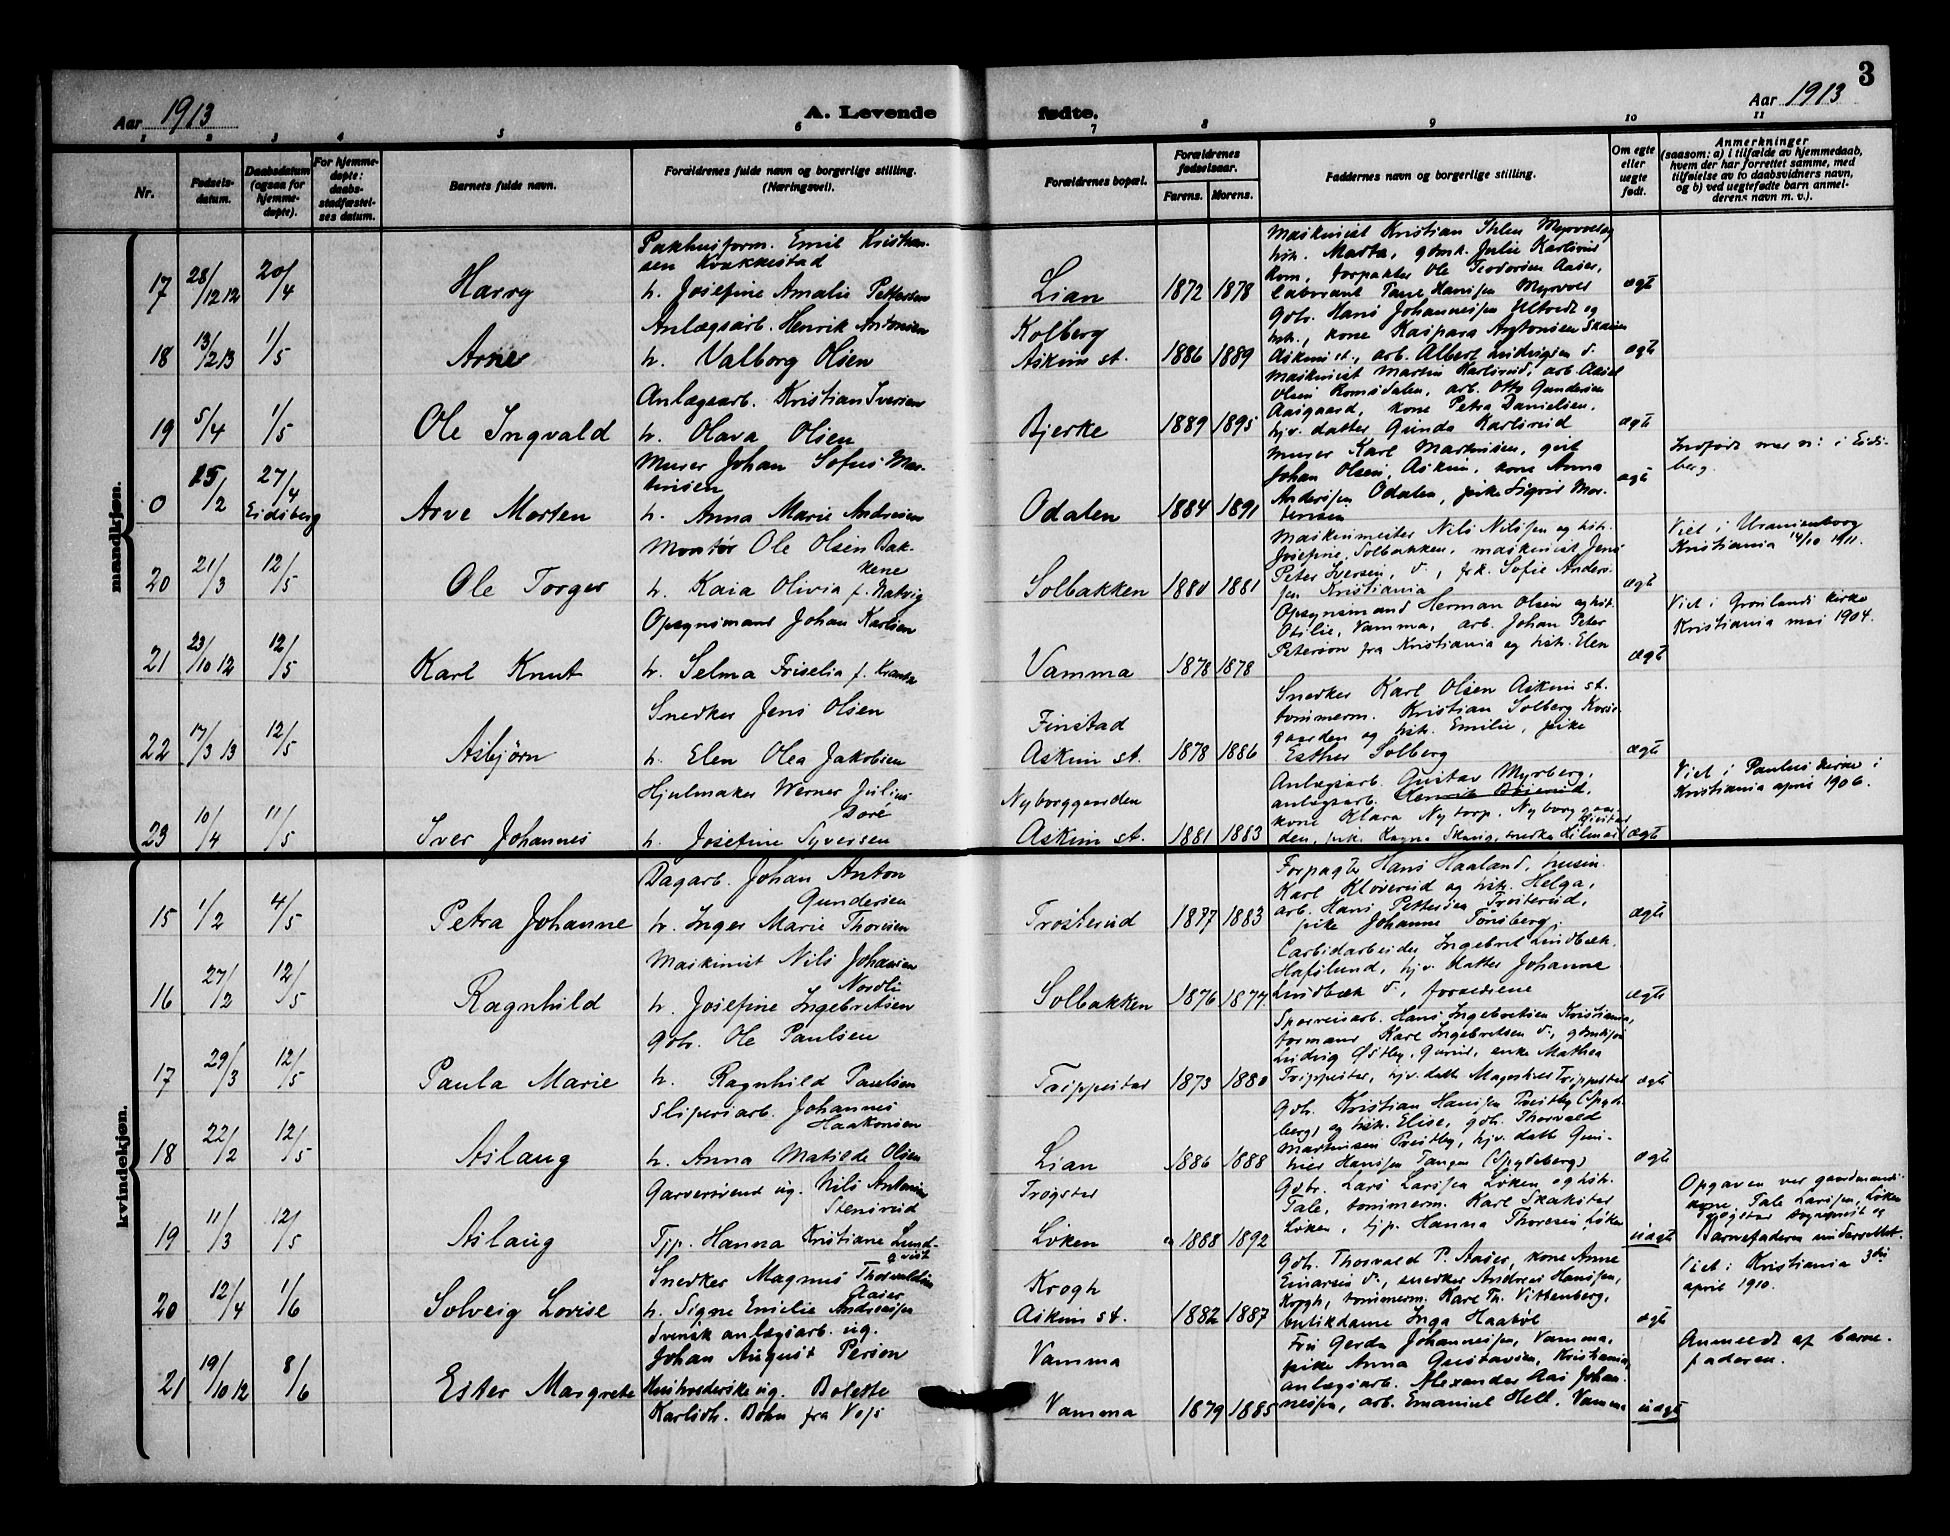 3
Aar 1913
A. Levende fødte.
Aar 1913
1 2 3 4 5 6 7 8 9 10 11
Nr.
Fødsels-
datum.
Daabsdatum
(ogsaa for
hjemme-
døpte).
For hjemme-
døpte:
daabs-
stadfæstel-
ses datum.
Barnets fulde navn.
Forældrenes fulde navn og borgerlige stilling.
(Næringsvei).
Forældrenes bopæl.
Forældrenes
fødselsaar.
Farens. Morens.
Faddernes navn og borgerlige stilling.
Om egte
eller
uegte
født.
Anmerkninger
(saasom: a) i tilfælde av hjemmedaab,
hvem der har forrettet samme, med
tilføielse av to daabsvidners navn,
og b) ved uegtefødte barn anmel-
derens navn m. v.).
mandkjøn.
17 28/12 12 20/4 Harry
Pakhusform. Emil Kristian-
sen Krækkestad
h. Josefine Amalie Pettersen
Lian 1872 1878
Maskinist Kristian Ihlen Myrvold og
hst. Marta, gbmk. Julie Karlsrud
kom, forpakter Ole Teodorsen Aaser,
laborant Paul Hanssen Myrvold
egte
18 13/2 13 1/5 Arne
Anlægsarb. Henrik Antonsen
h. Valborg Olsen
Kolberg
Askim st. 1886 1889
Gbr. Hans Johannessen Ultvedt og
hst., kone Kaspara Antonsen Skaien
Askim st., arb. Albert Ludvigsen d.
egte
19 5/4 1/5 Ole Ingvald
Anlægsarb. Kristian Iversen
h. Olava Olsen
Bjerke 1889 1895
Maskinist Martin Karlsrud, arb. Aksel
Olsen Romsdalen, arb. Otto Gundersen
Aasgaard, kone Petra Danielsen,
hjv. datter Gunda Karlsrud
egte
0 25/2 27/4 Eidsberg Arve Morten
Murer Johan Sofus Mar-
tinsen
h. Anna Marie Andresen
Odalen 1884 1891
Murer Karl Martinsen, gut
Johan Olsen, Askim, kone Anna
Andersen Odalen, pike Sigrid Mar-
tinsen
egte
Indført med nr: i Eids-
berg.
20 21/3 12/5 Ole Torger
Montør Ole Olsen Bak-
kene
h. Kaia Olivia f. Natvig
Solbakken 1880 1881
Maskinmester Nils Nilssen og hst.
Josefine, Solbakken, maskinist Jens
Peter Iversen, d., frk. Sofie Anders-
sen Kristiania
egte
Viet i Uranienborg
Kristiania 14/10 1911.
21 23/10 12 12/5 Karl Knut
Opsynsmand Johan Karlsen
h. Selma Friselia f. Krantz
Vamma 1878 1878
Opsynsmand Herman Olsen og hst.
Otilie, Vamma, arb. Johan Peter
Peterson fra Kristiania og hst. Elen
egte
Viet i Grønlands kirke
Kristiania mai 1904.
22 17/3 13 12/5 Asbjørn
Snedker Jens Olsen
h. Elen Olea Jakobsen
Finstad
Askim st. 1878 1886
Snedker Karl Olsen Askim st.
tømmerm. Kristian Solberg Kors-
gaarden og hst. Emilie, pike
Esther Solberg
egte
23 10/4 11/5 Iver Johannes
Hjulmaker Werner Julius
Boré
h. Josefine Syversen
Nyborggaarden
Askim st. 1881 1883
Anlægsarb. Gustav Myrberg,
anlægsarb.
kone Klara Nytorp, Nyborggaar-
den, pike Ragna Skaug, snedker Hilmar
egte
Viet i Paulus kirke i
Kristiania april 1906.
kvindekjøn.
15 1/2 4/5 Petra Johanne
Dagarb. Johan Anton
Gundersen
h. Inger Marie Thoresen
Trosterud 1887 1883
Forpagter Hans Haaland, husm.
Karl Kløverud og hst. Helga,
arb. Hans Pettersen Trosterud,
pike Johanne Tønsberg.
egte
16 27/2 12/5 Ragnhild
Maskinist Nils Johansen
Nordli
h. Josefine Ingebretsen
Solbakken 1876 1874
Carbidarbeider Ingebret Lindbæk
Hafslund, hjv. datter Johanne
Lindbæk d., forældrene
egte
17 29/3 12/5 Paula Marie
Gbr. Ole Paulsen
h. Ragnhild Paulsen
Trippestad 1873 1880
Sporveisarb. Hans Ingebretsen Kristiania,
formand Karl Ingebretsen d.,
Ludvig Østby, enke Mathea
Trippestad, hjv. datt. Trippestad
egte
18 22/2 12/5 Aslaug
Sliperiarb. Johannes
Haakonsen
h. Anna Matilde Olsen
Lian 1886 1888
Gbr. Kristian Hanssen Prestby (Spyde-
berg) og hst. Elise, gbr. Thorvald
Martinsen Prestby, hjv. datt.
Hanssen Tangen (Spydeberg)
egte
19 11/3 12/5 Aslaug
Garversvend ug. Nils Antonsen
Stensrud
Tjp. Hanna Kristiane Lund-
qvist
Trøgstad
Løken 1888 1892
Gbr. Lars Larssen Løken og hst.
Tale, tømmerm. Karl Skakstad
Løken, tjp. Hanna Thoresen Løken
uegte
Opgaven ved gaardmands-
kone Tale Larssen, Løken
Barnefaderen underrettet.
20 12/4 1/6 Solveig Lovise
Snedker Magnus Thorvaldsen
Aaser
h. Signe Emelie Andreassen
Krogh
Askim st. 1882 1887
Gbr. Thorvald P. Aaser, kone Anne
Einarsen d., snedker Andreas Hanssen,
Krogh, tømmerm. Karl Th. Vittenberg,
butikdame Inga Haabøl
egte
Viet i Kristiania 3die
april 1910.
21 19/10 12 8/6 Ester Margrete
Svensk anlægsarb. ug.
Johan August Person
Husholderske ug. Bolette
Karlsdt. Bøhn fra Voss
Vamma
Vamma 1879 1885
Fru Gerda Johannessen, Vamma,
pike Anna Gustavsen, Kristiania,
anlægsarb. Alexander Aas Johan-
nessen, arb. Emanuel Hell, Vamma
uegte
Anmeldt af barne-
faderen.